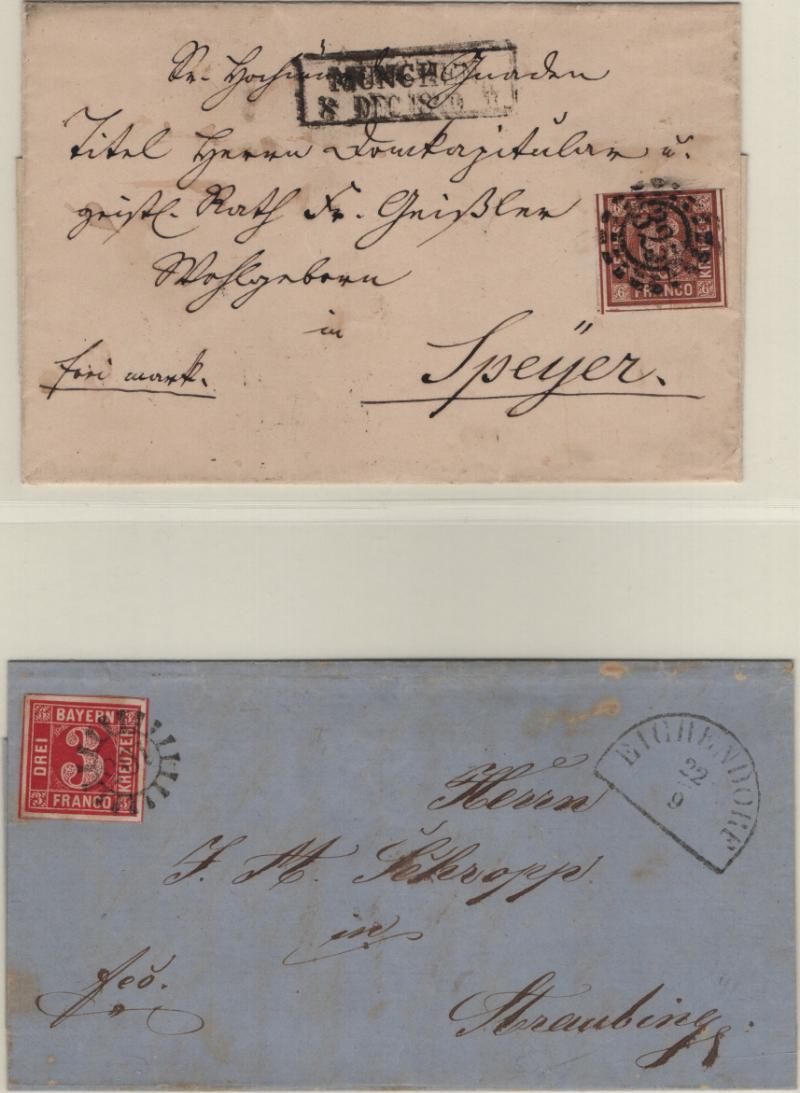 Sr. Hochwürden Gnaden
MÜNCHEN
8 DEC 18
Titel Herrn Domkapitular u.
geistl. Rath Fr. Geißler
Wohlgeborn
in
Speÿer.
frei mark.
KREUZER
6 FRANCO 6
BAYERN
DREI
3
KREUZER
FRANCO
EICHENDORF
22
9
Herrn
J. M. Schropp
in
Straubing.
fco.